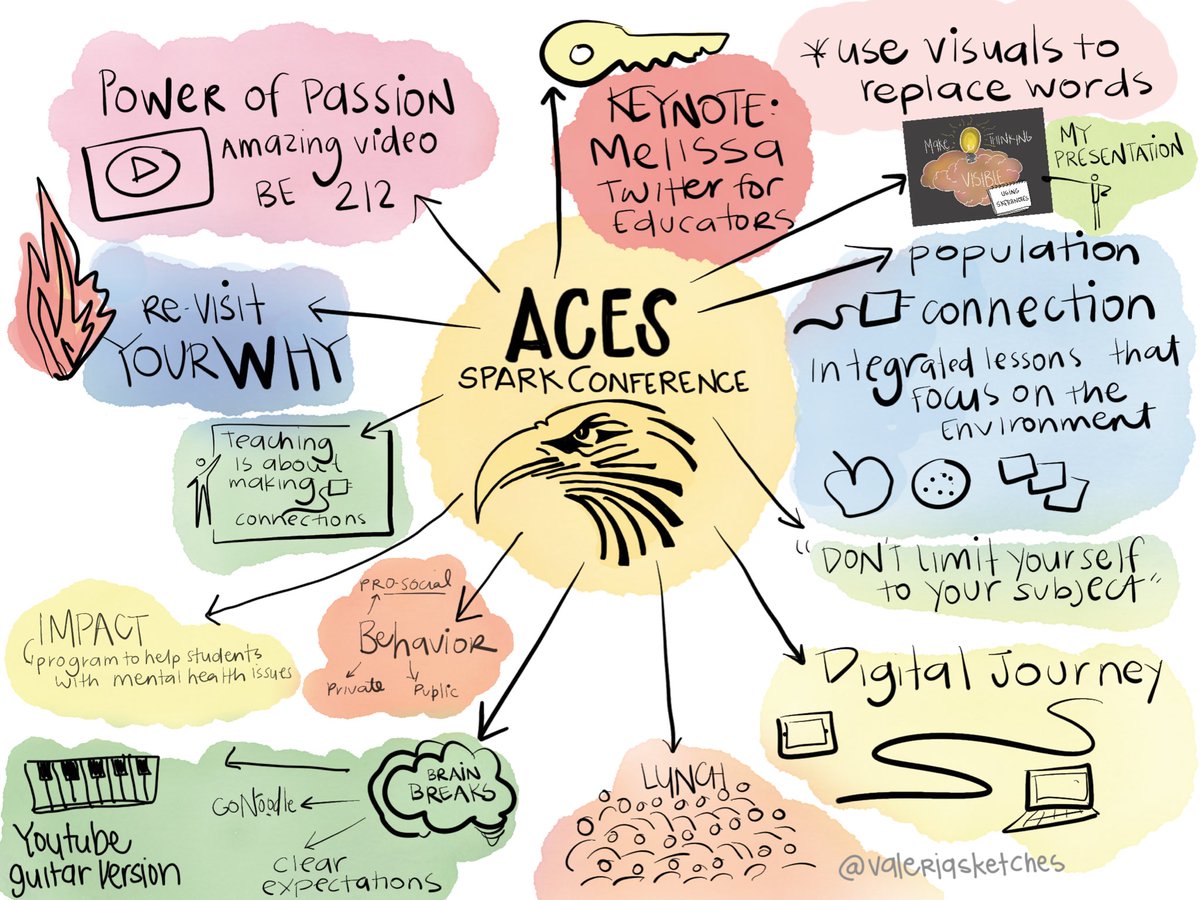 POWER of PASSION
Amazing video
BE 212
KEYNOTE:
Melissa
Twitter for
Educators
*use visuals to
replace words
MAKE THINKING
VISIBLE
USING
SKETCHNOTES
MY
PRESENTATION
population
connection
Integraled lessons that
focus on the
Environment
"DON'T limit yourself
to your subject"
Digital Journey
ACES
SPARK CONFERENCE
RE-VISIT
YOUR WHY
Teaching
is about
making
connections
IMPACT
program to help students
with mental health issues
PRO-SOCIAL
Behavior
Private Public
BRAIN
BREAKS
GoNoodle
clear
expectations
Youtube
guitar version
LUNCH
@valeriasketches